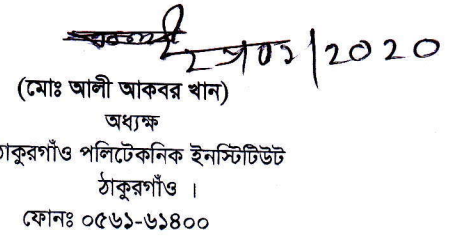 ২০২০
(মোঃ আলী আকবর খান)
অধ্যক্ষ
ঠাকুরগাঁও পলিটেকনিক ইনস্টিটিউট
ঠাকুরগাঁও ।
ফোনঃ ০৫৬১-৬১৪০০